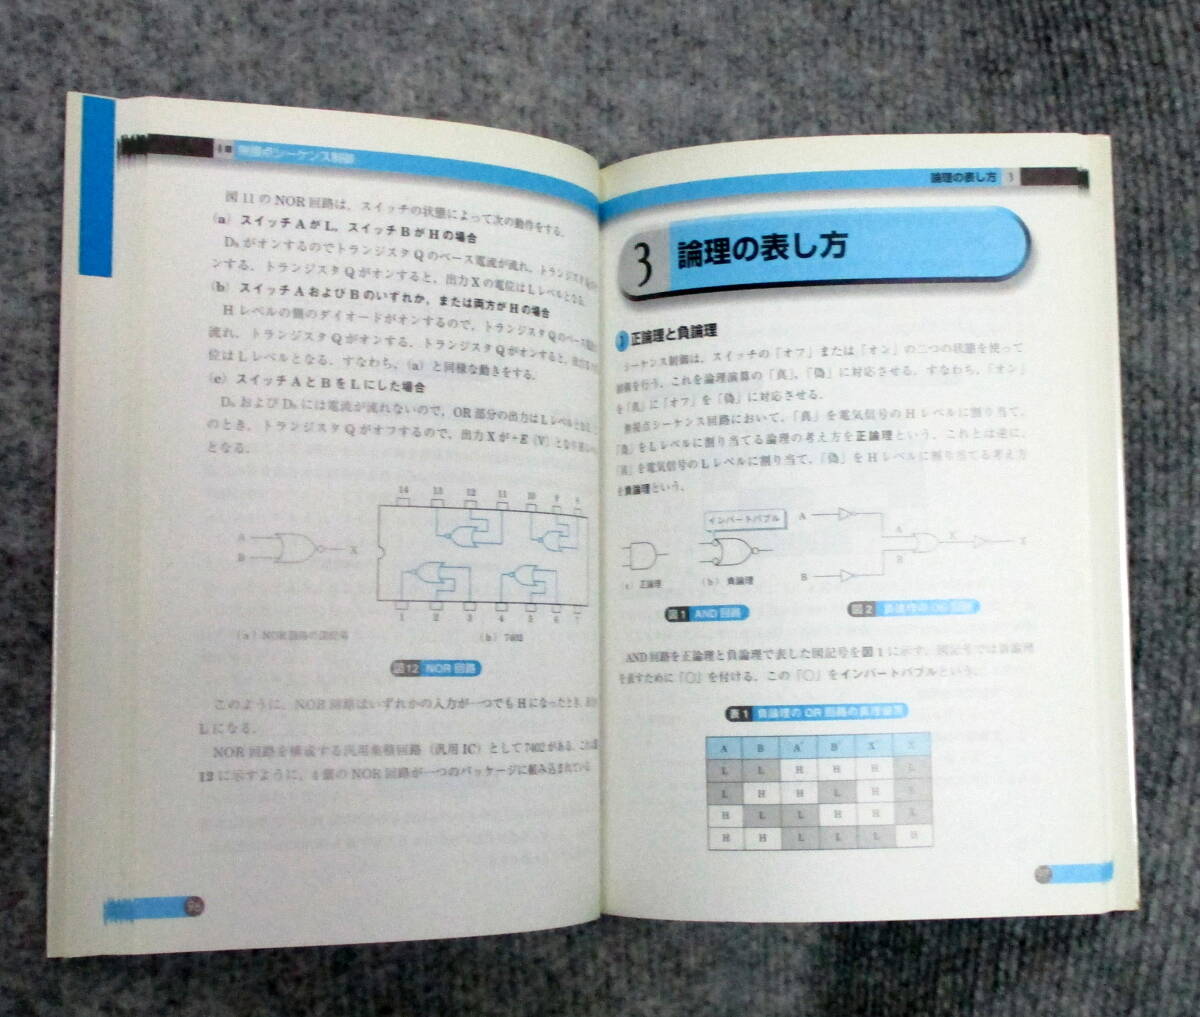 無接点シーケンス制御
図11のNOR回路は、スイッチの状態によって次の動作をする.
(a) スイッチAがL，スイッチBがHの場合
がオンするのでトランジスタQのベース電流が流れ，トランジスタ
ンする．トランジスタQがオンすると，出力Xの電位はLレベルとなる．
(b) スイッチAおよびBのいずれか，または両方がHの場合
Hレベルの側のダイオードがオンするので，トランジスタQのベース
流れ，トランジスタQがオンする．トランジスタQがオンすると，
位はLレベルとなる．すなわち，(a) と同様な動きをする．
(c) スイッチAとBをLにした場合
および には電流が流れないので，OR部分の出力はLレベルとなる．
のとき，トランジスタQがオフするので，出力Xが+E〔V〕となり
となる．
14 13 12 11 10 9 8
A
B
X
1 2 3 4 5 6 7
(a) NOR回路の図記号
(b) 7402
図12 NOR回路
このように，NOR回路はいずれかの入力が一つでもHになったとき，
Lになる．
NOR回路を構成する汎用集積回路（汎用IC）として7402がある．これは
12に示すように，4個のNOR回路が一つのパッケージに組み込まれている
96
論理の表し方 3
3 論理の表し方
1 正論理と負論理
シーケンス制御は，スイッチの「オフ」または「オン」の二つの状態を使って
制御を行う．これを論理演算の「真」，「偽」に対応させる．すなわち，「オン」
を「真」に「オフ」を「偽」に対応させる．
無接点シーケンス回路において，「真」を電気信号のHレベルに割り当て，
「偽」をLレベルに割り当てる論理の考え方を正論理という．これとは逆に，
「真」を電気信号のLレベルに割り当て，「偽」をHレベルに割り当てる考え方
を負論理という．
インバートバブル
(a) 正論理
(b) 負論理
A
B
A
B
X
X
図1 AND回路
図2 負論理のOR回路
AND回路を正論理と負論理で表した図記号を図1に示す．図記号では負論理
を表すために「○」を付ける．この「○」をインバートバブルという．
表1 負論理のOR回路の真理値表
A B A' B' X' X
L L H H H L
L H H L H L
H L L H H L
H H L L L H
97